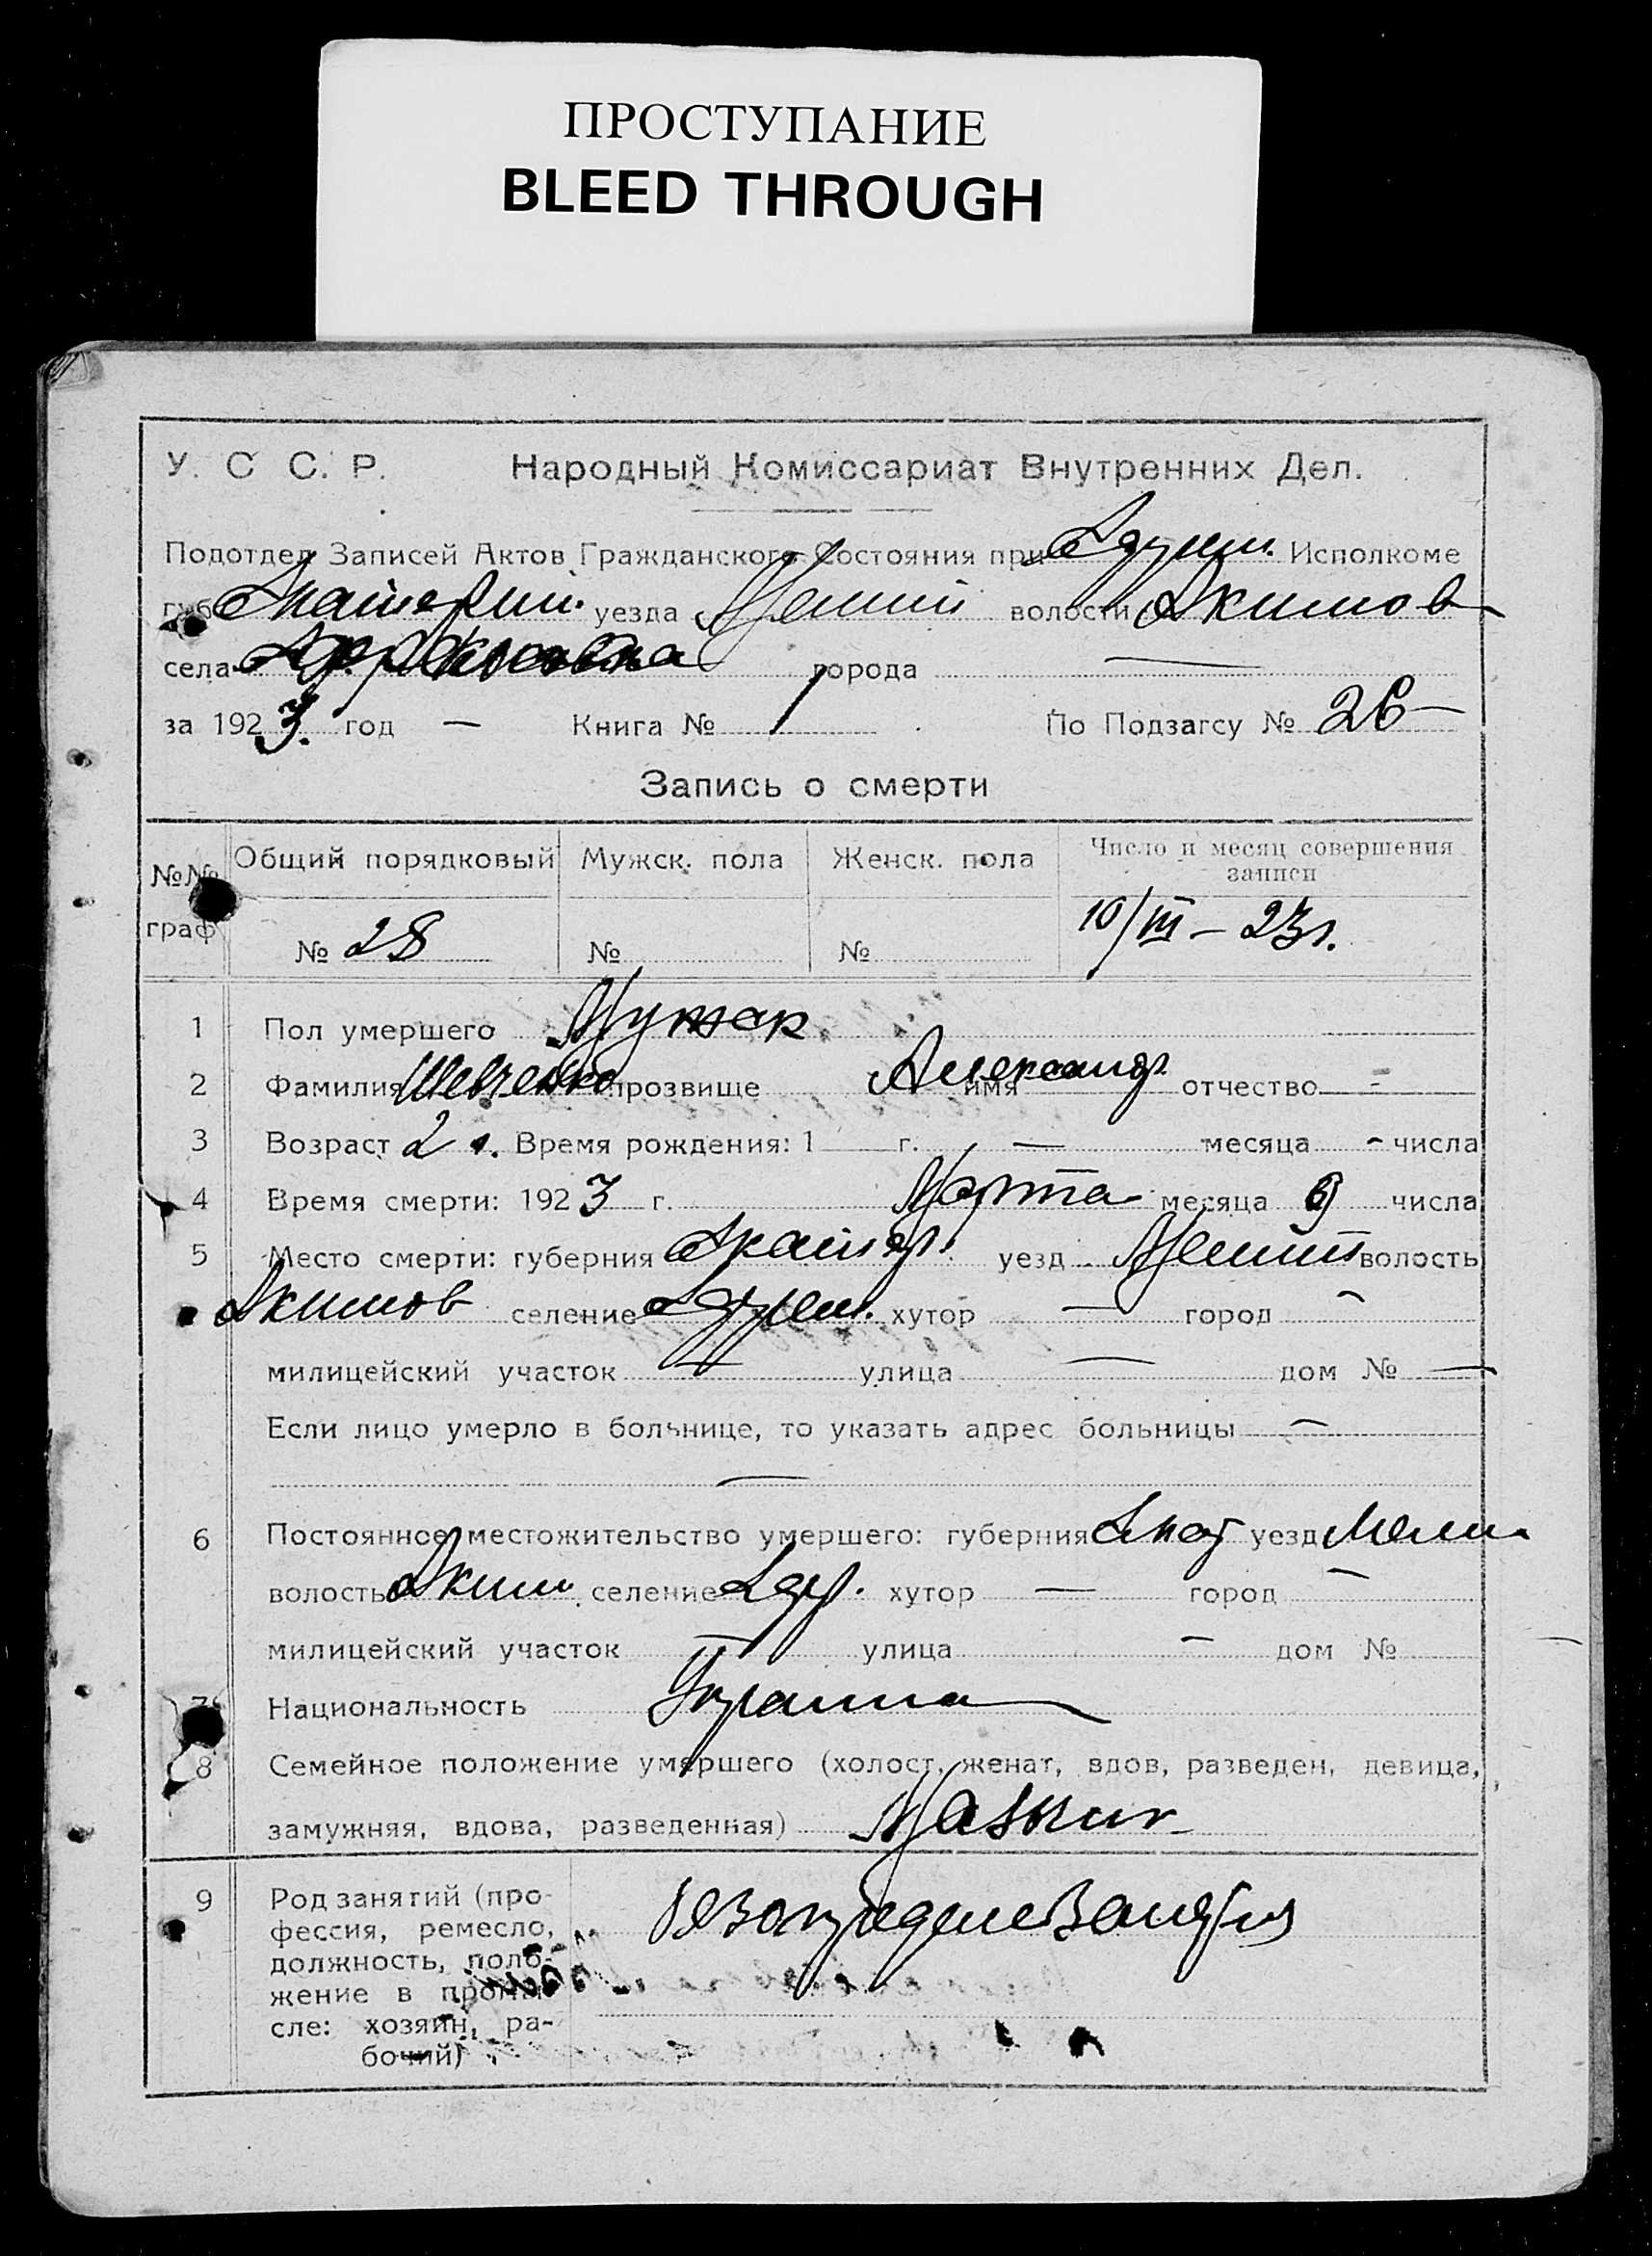 ПРОСТУПАНИЕ
BLEED THROUGH
У. С С. Р. Народный Комиссариат Внутренних Дел.
Подотдел Записей Актов Гражданского Состояния при Исполкоме
губ Екатерин. уезда Мелит волости Акимов
села города —
за 1923 год — Книга № 1 По Подзагсу № 26 —
Запись о смерти
№№ граф Общий порядковый Мужск. пола Женск. пола Число и месяц совершения записи
№ 28 № № 10/III – 23 г.
1 Пол умершего Мужск
2 Фамилия Шевченко прозвище имя Александр отчество —
3 Возраст 2 г. Время рождения: 1 г. — месяца - числа
4 Время смерти: 1923 г. Марта месяца 9 числа
5 Место смерти: губерния Екатер. уезд Мелит волость
Акимов селение хутор — город -
милицейский участок — улица — дом № —
Если лицо умерло в больнице, то указать адрес больницы —
—
6 Постоянное местожительство умершего: губерния Екат уезд Мели
волость Аким селение хутор — город —
милицейский участок — улица — дом № —
7 Национальность Украина
8 Семейное положение умершего (холост, женат, вдов, разведен, девица,
замужняя, вдова, разведенная)
9 Род занятий (про-
фессия, ремесло,
должность, поло-
жение в промы-
сле: хозяин, ра-
бочий)